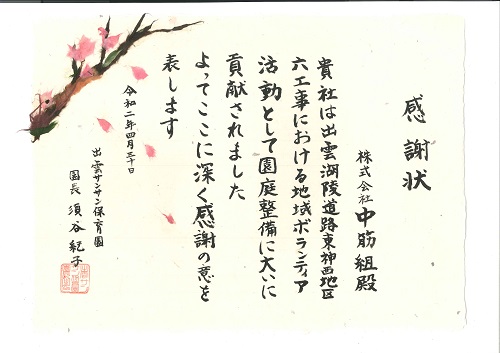 感謝状
株式会社 中筋組殿
貴社は出雲湖陵道路東神西地区
六工事における地域ボランティア
活動として園庭整備に大いに
貢献されました
よってここに深く感謝の意を
表します
令和二年四月三十日
出雲サンサン保育園
園長 須谷紀子